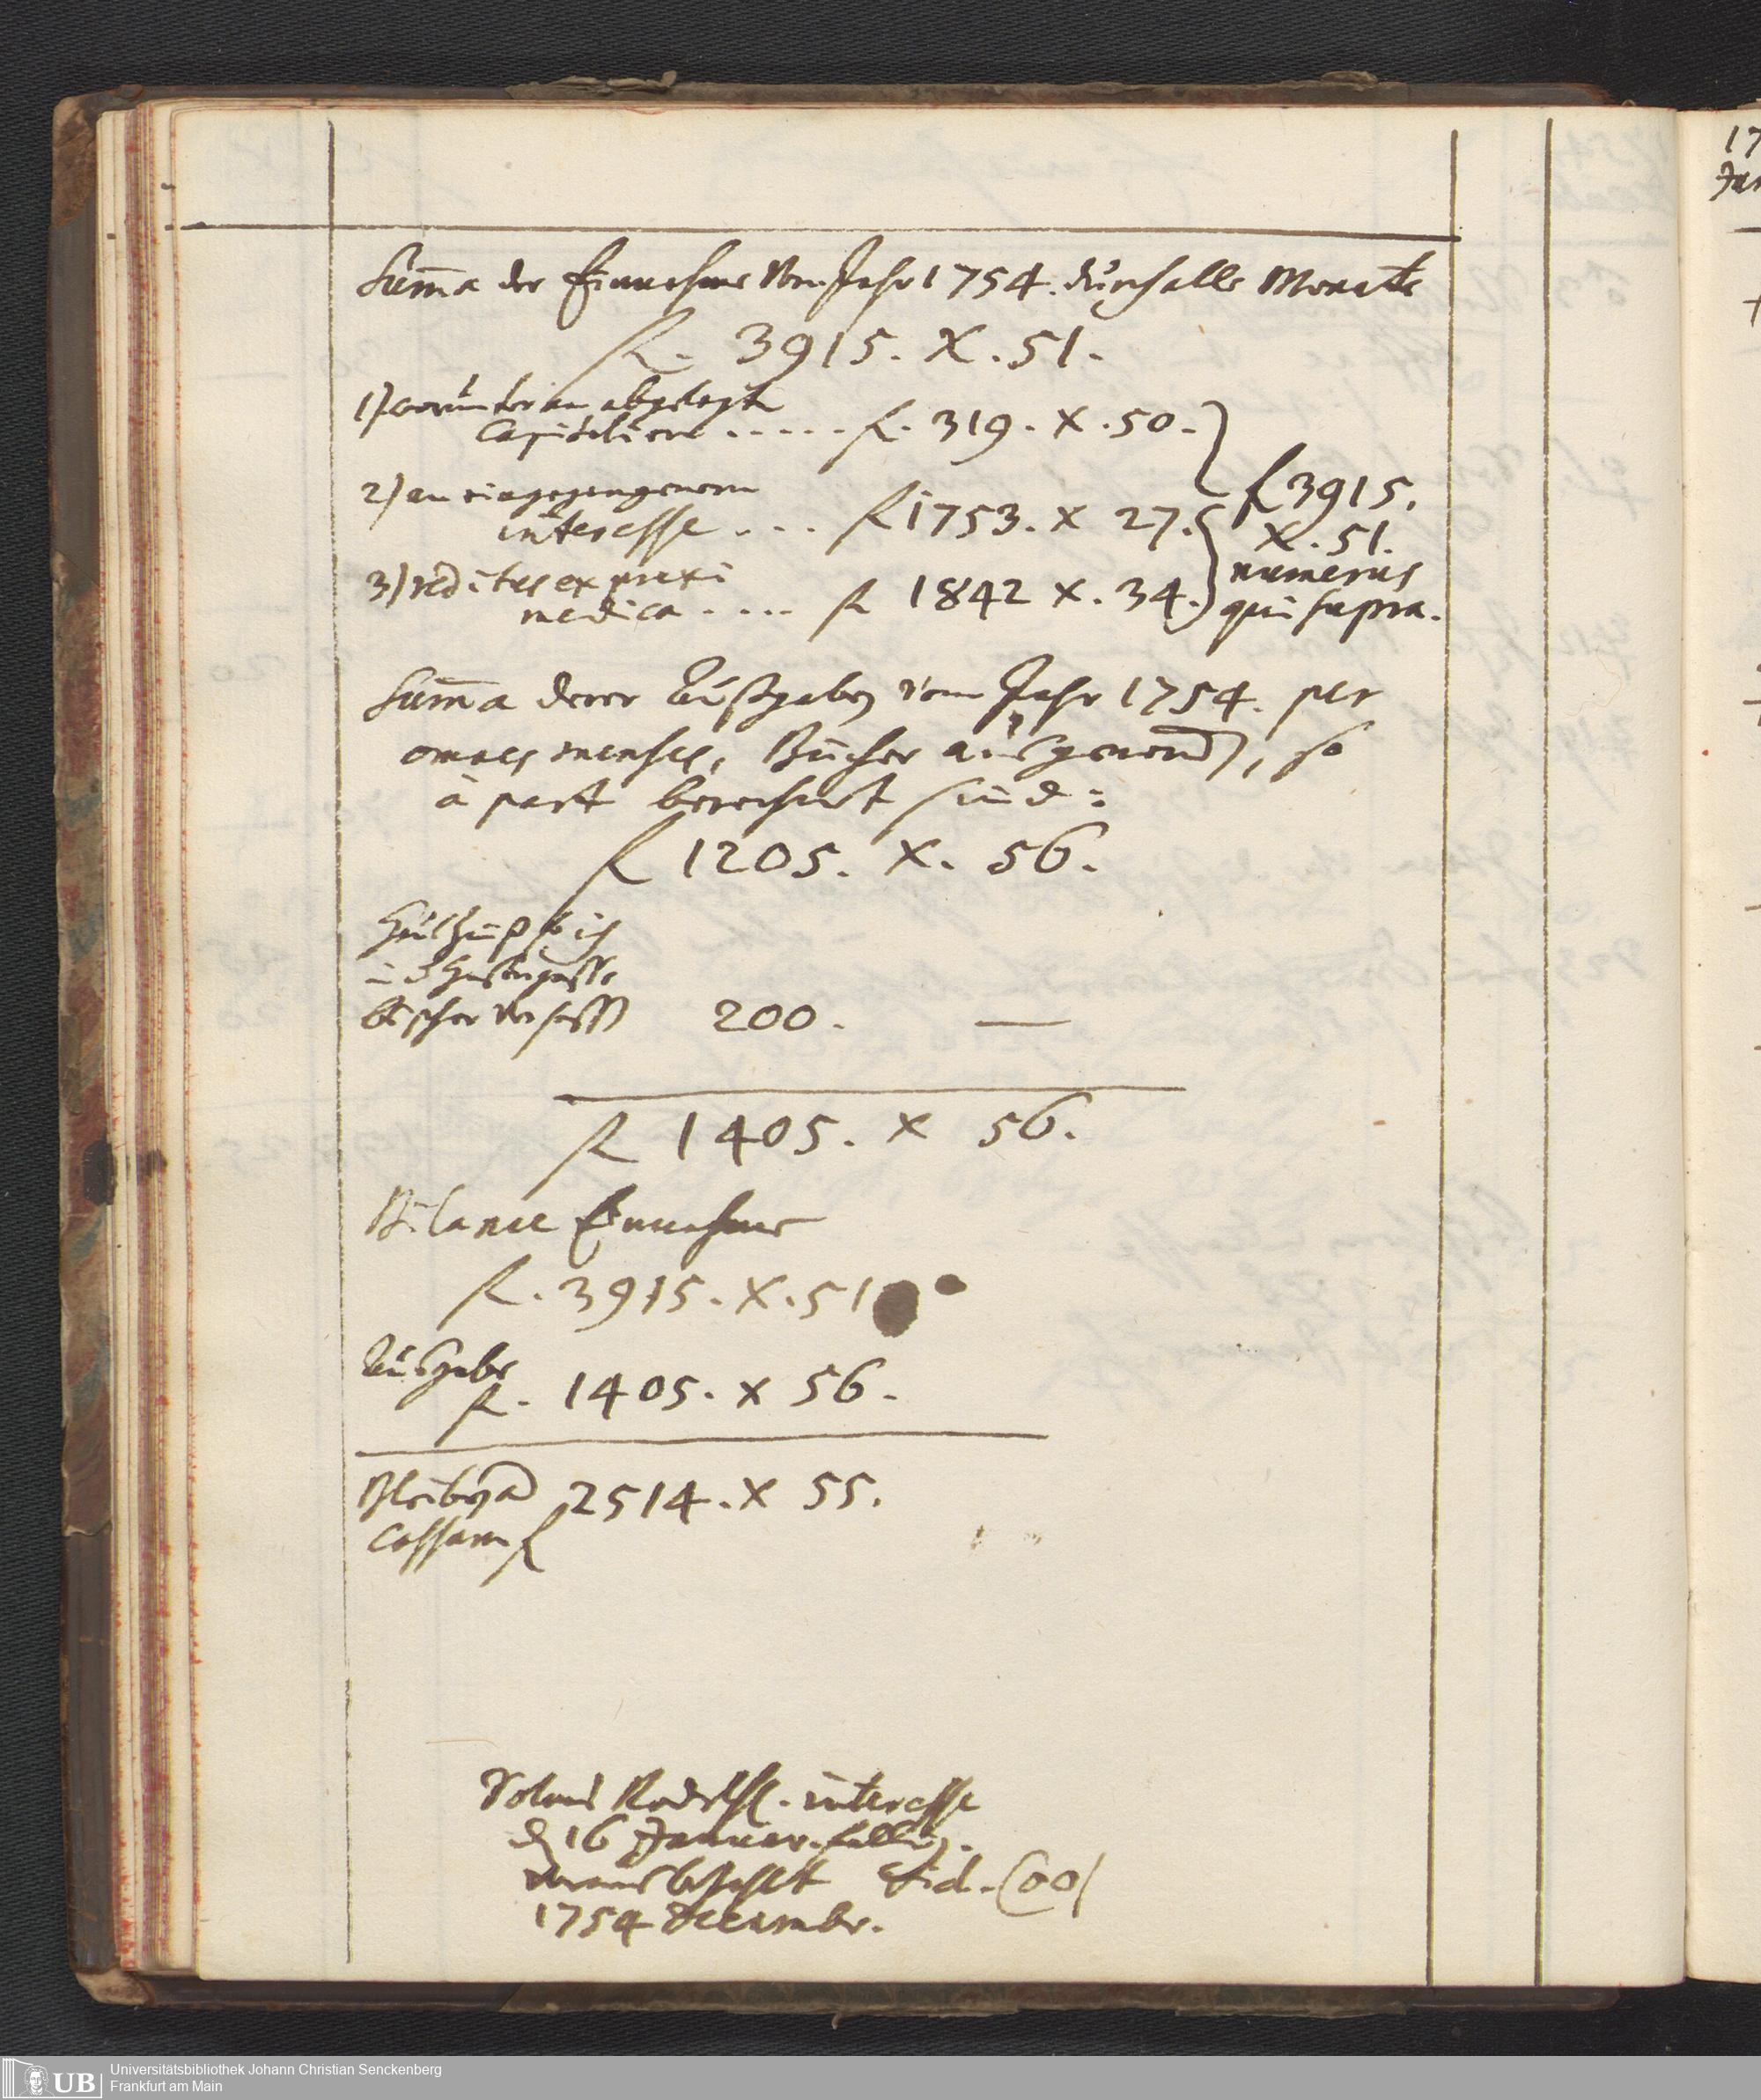 Sum̄a der Einnahme vom Jahr 1754. durch alle Monate
fl. 3915. X. 51.
1) worunter an abgelegten
Capitalien ..... fl. 319. X. 50.
2) an eingegangenem
interesse .... fl 1753. x 27.
3) reditus ex praxi
medica .... fl 1842 x. 34.
fl 3915.
X. 51.
numerus
qui supra.
Sum̄a derer Außgaben vom Jahr 1754. per
omnes menses, Bücher ausgenom̄en, so
à part berechnet sind:
fl 1205. x. 56.
Hauszinß so ich
in d Hasengasse
200. —
fl 1405. x 56.
Bilance Einnahme
fl. 3915. X. 51
Ausgabe
fl. 1405. x 56.
Bleiben a
Cassam fl 2514. x 55.
interesse
d 16 Januar. fällig.
voraus bezahlt vid. (00)
1754 Decembr.
17
Jan
UB
Universitätsbibliothek Johann Christian Senckenberg
Frankfurt am Main